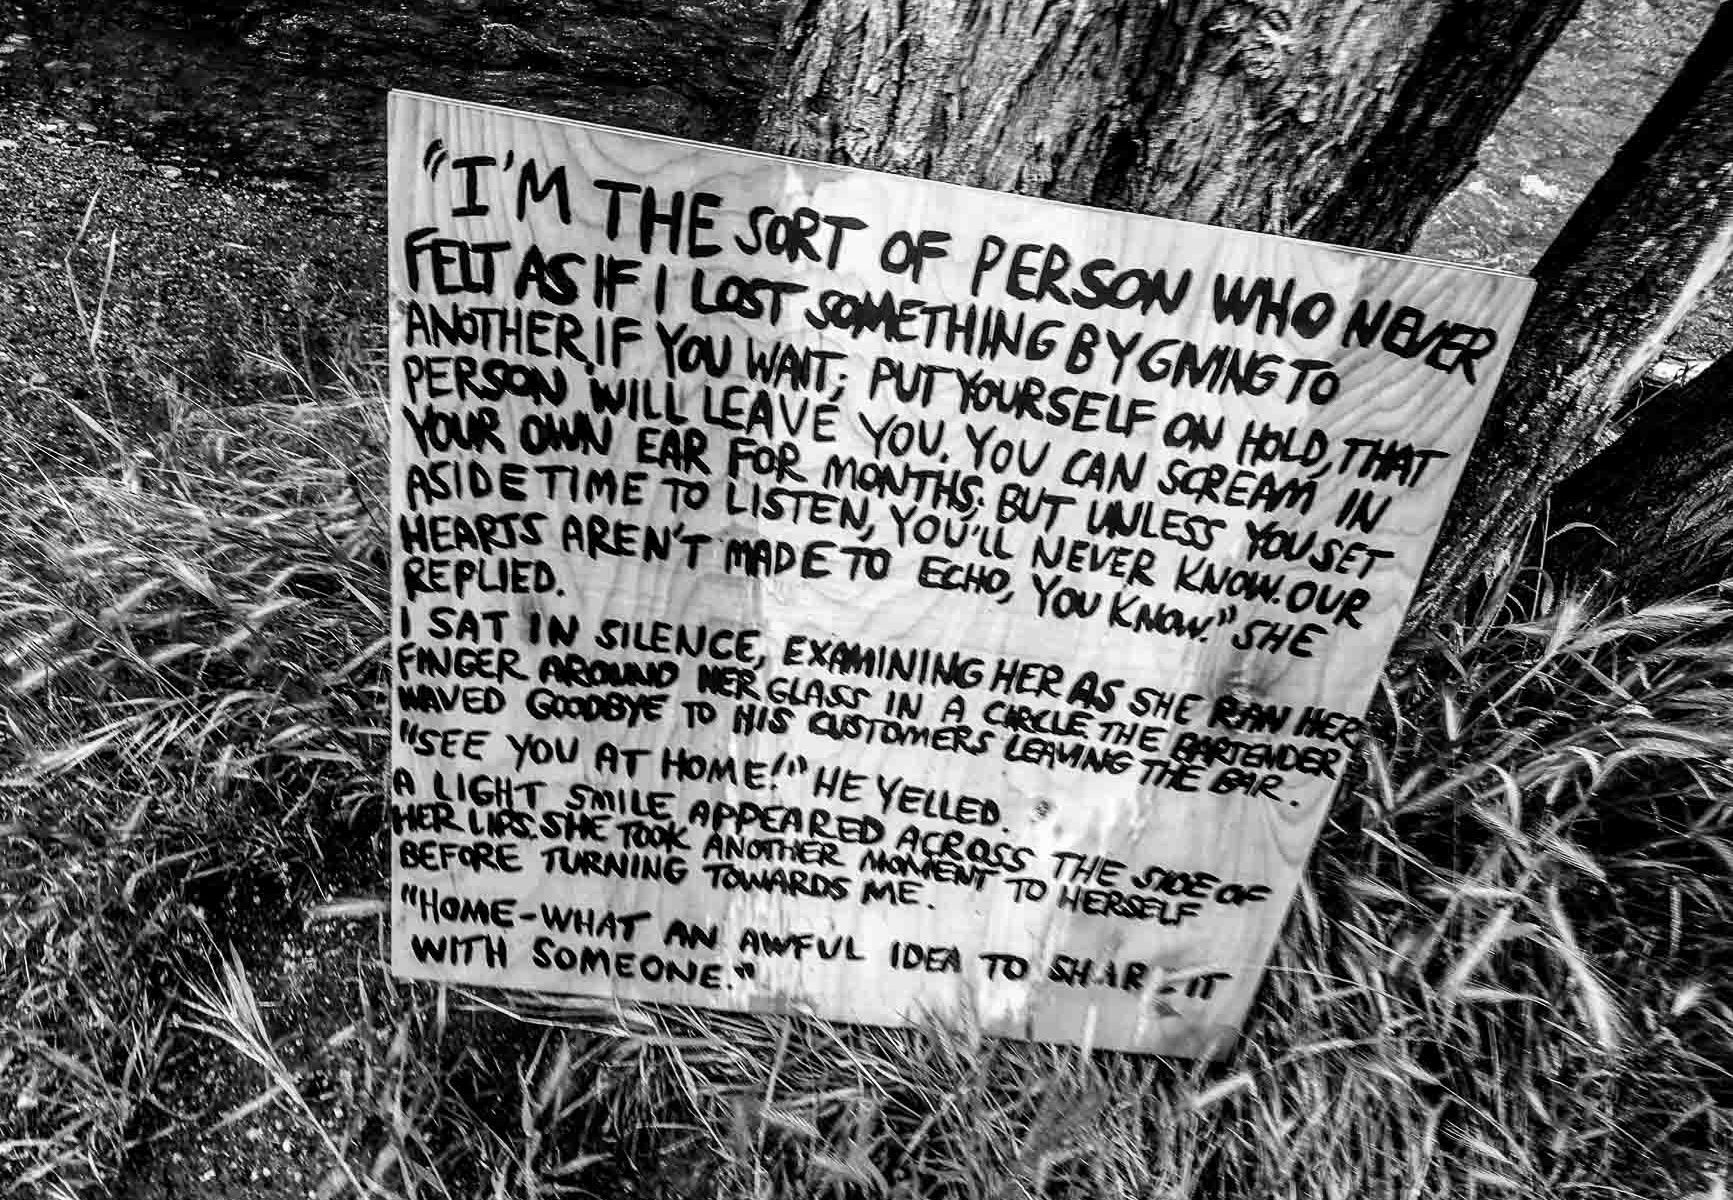 "I'M THE SORT OF PERSON WHO NEVER
FELT AS IF I LOST SOMETHING BY GIVING TO
ANOTHER, IF YOU WAIT; PUT YOURSELF ON HOLD, THAT
PERSON WILL LEAVE YOU. YOU CAN SCREAM IN
YOUR OWN EAR FOR MONTHS; BUT UNLESS YOU SET
ASIDE TIME TO LISTEN, YOU'LL NEVER KNOW. OUR
HEARTS AREN'T MADE TO ECHO, YOU KNOW." SHE
REPLIED.
I SAT IN SILENCE, EXAMINING HER AS SHE RAN HER
FINGER AROUND HER GLASS IN A CIRCLE THE BARTENDER
WAVED GOODBYE TO HIS CUSTOMERS LEAVING THE BAR.
"SEE YOU AT HOME!" HE YELLED.
A LIGHT SMILE APPEARED ACROSS THE SIDE OF
HER LIPS. SHE TOOK ANOTHER MOMENT TO HERSELF
BEFORE TURNING TOWARDS ME.
"HOME-WHAT AN AWFUL IDEA TO SHARE IT
WITH SOMEONE."